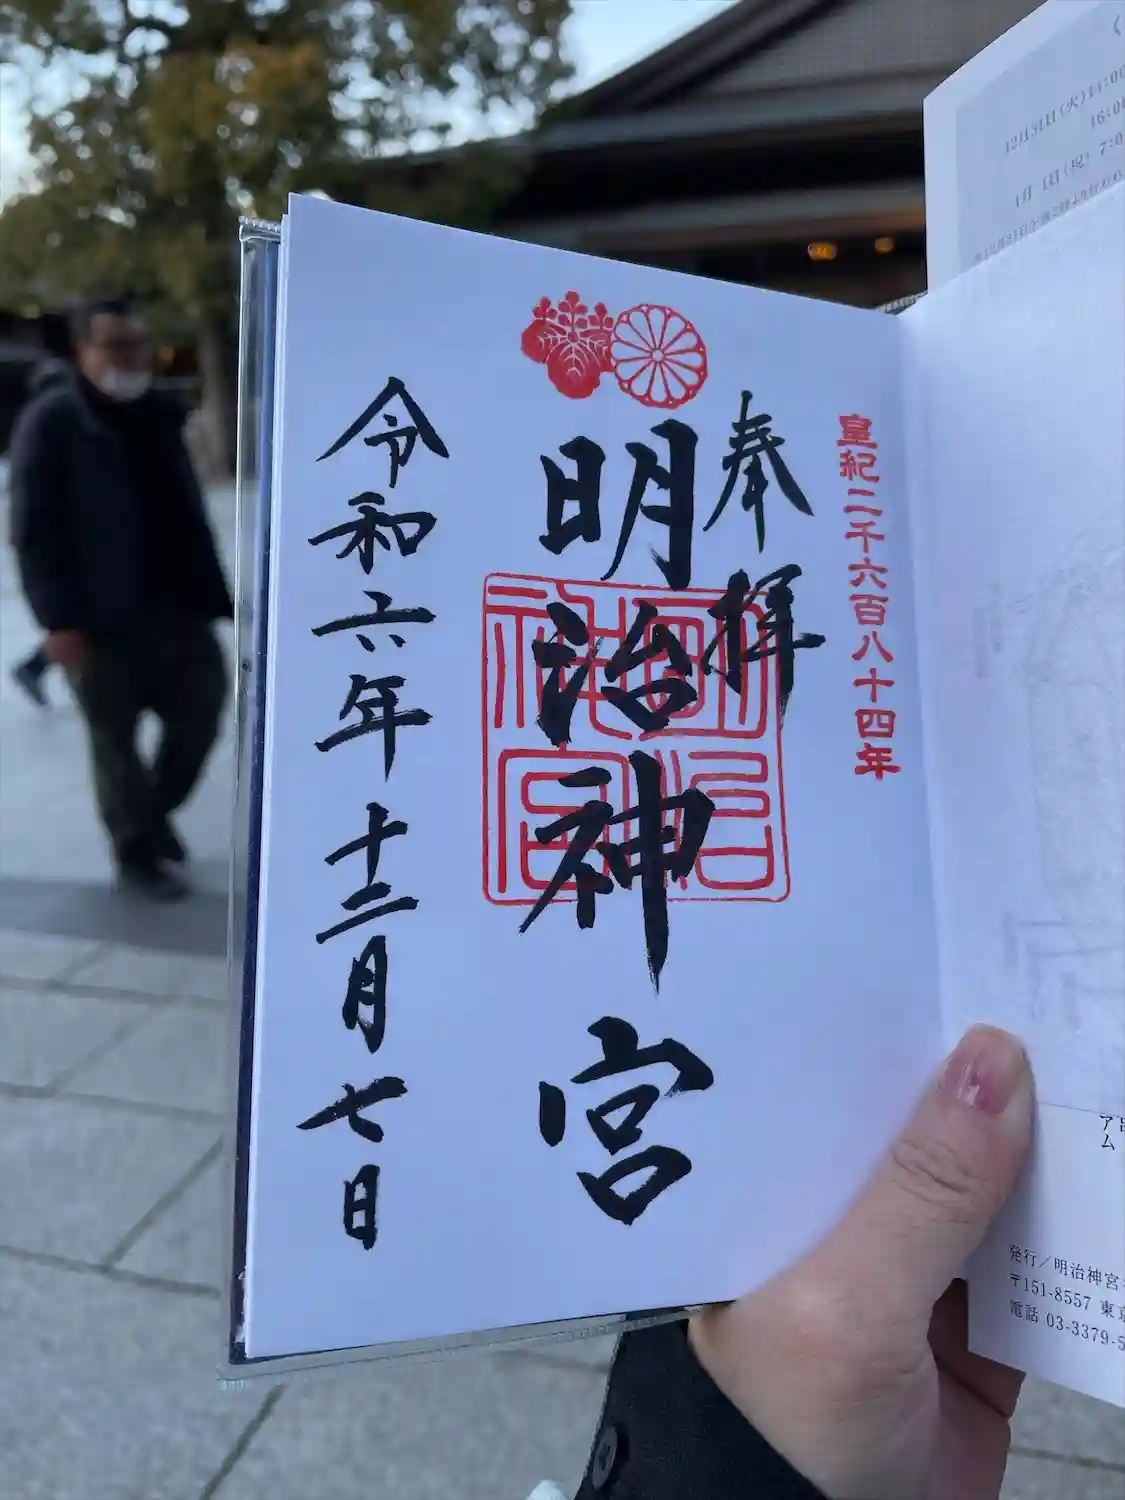 皇紀二千六百八十四年
奉拝
明治神宮
明治神宮
令和六年十二月七日
12月31日(火)14:00
16:00
1月 1日(祝) 7:0
アム
発行/明治神宮
〒151-8557 東京
電話 03-3379-5